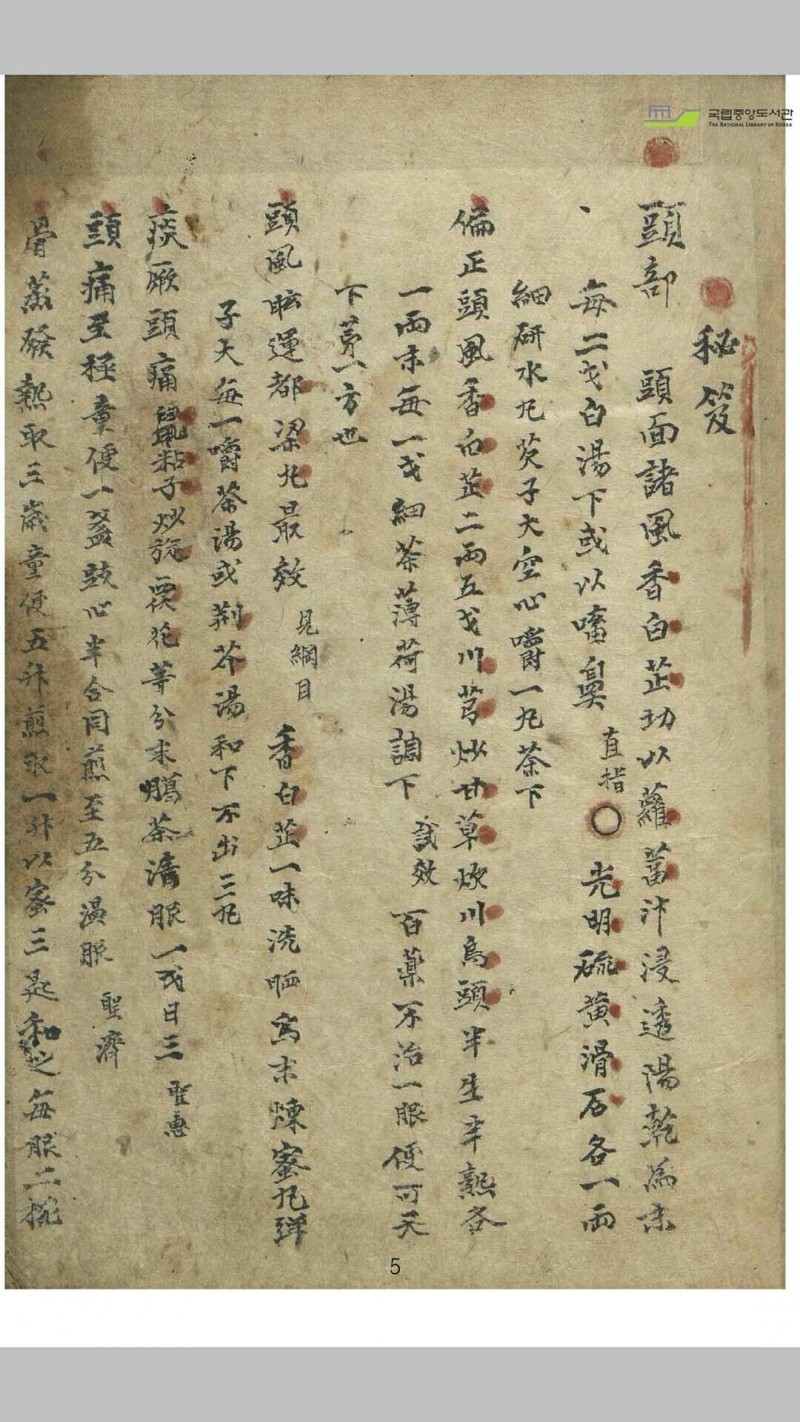 국립중앙도서관
THE NATIONAL LIBRARY OF KOREA
秘笈
頭部 頭面諸風香白芷切以蘿葍汁浸透陽乾為末
每二戔白湯下或以嗜鼻 直指 ○ 光明硫黃滑石各一兩
細研水丸芡子大空心嚼一丸茶下
偏正頭風香白芷二兩五戔川芎炒甘草炊川烏頭半生半熟各
一兩末每一戔細茶薄荷湯調下 試效 百藥不治一服便可天
下第一方也
頭風眩運都梁丸最效 見綱目 香白芷一味洗晒為末煉蜜丸彈
子大每一嚼茶湯或荊芥湯和下不出三丸
痰厥頭痛鼠粘子炒旋覆花等分末臈茶清服一戔日三 聖惠
頭痛至極童便一盞豉心半合同煎至五分溫服 聖濟
骨蒸發熱取三歲童便五升煎取一升以蜜三匙和之每服二椀
5